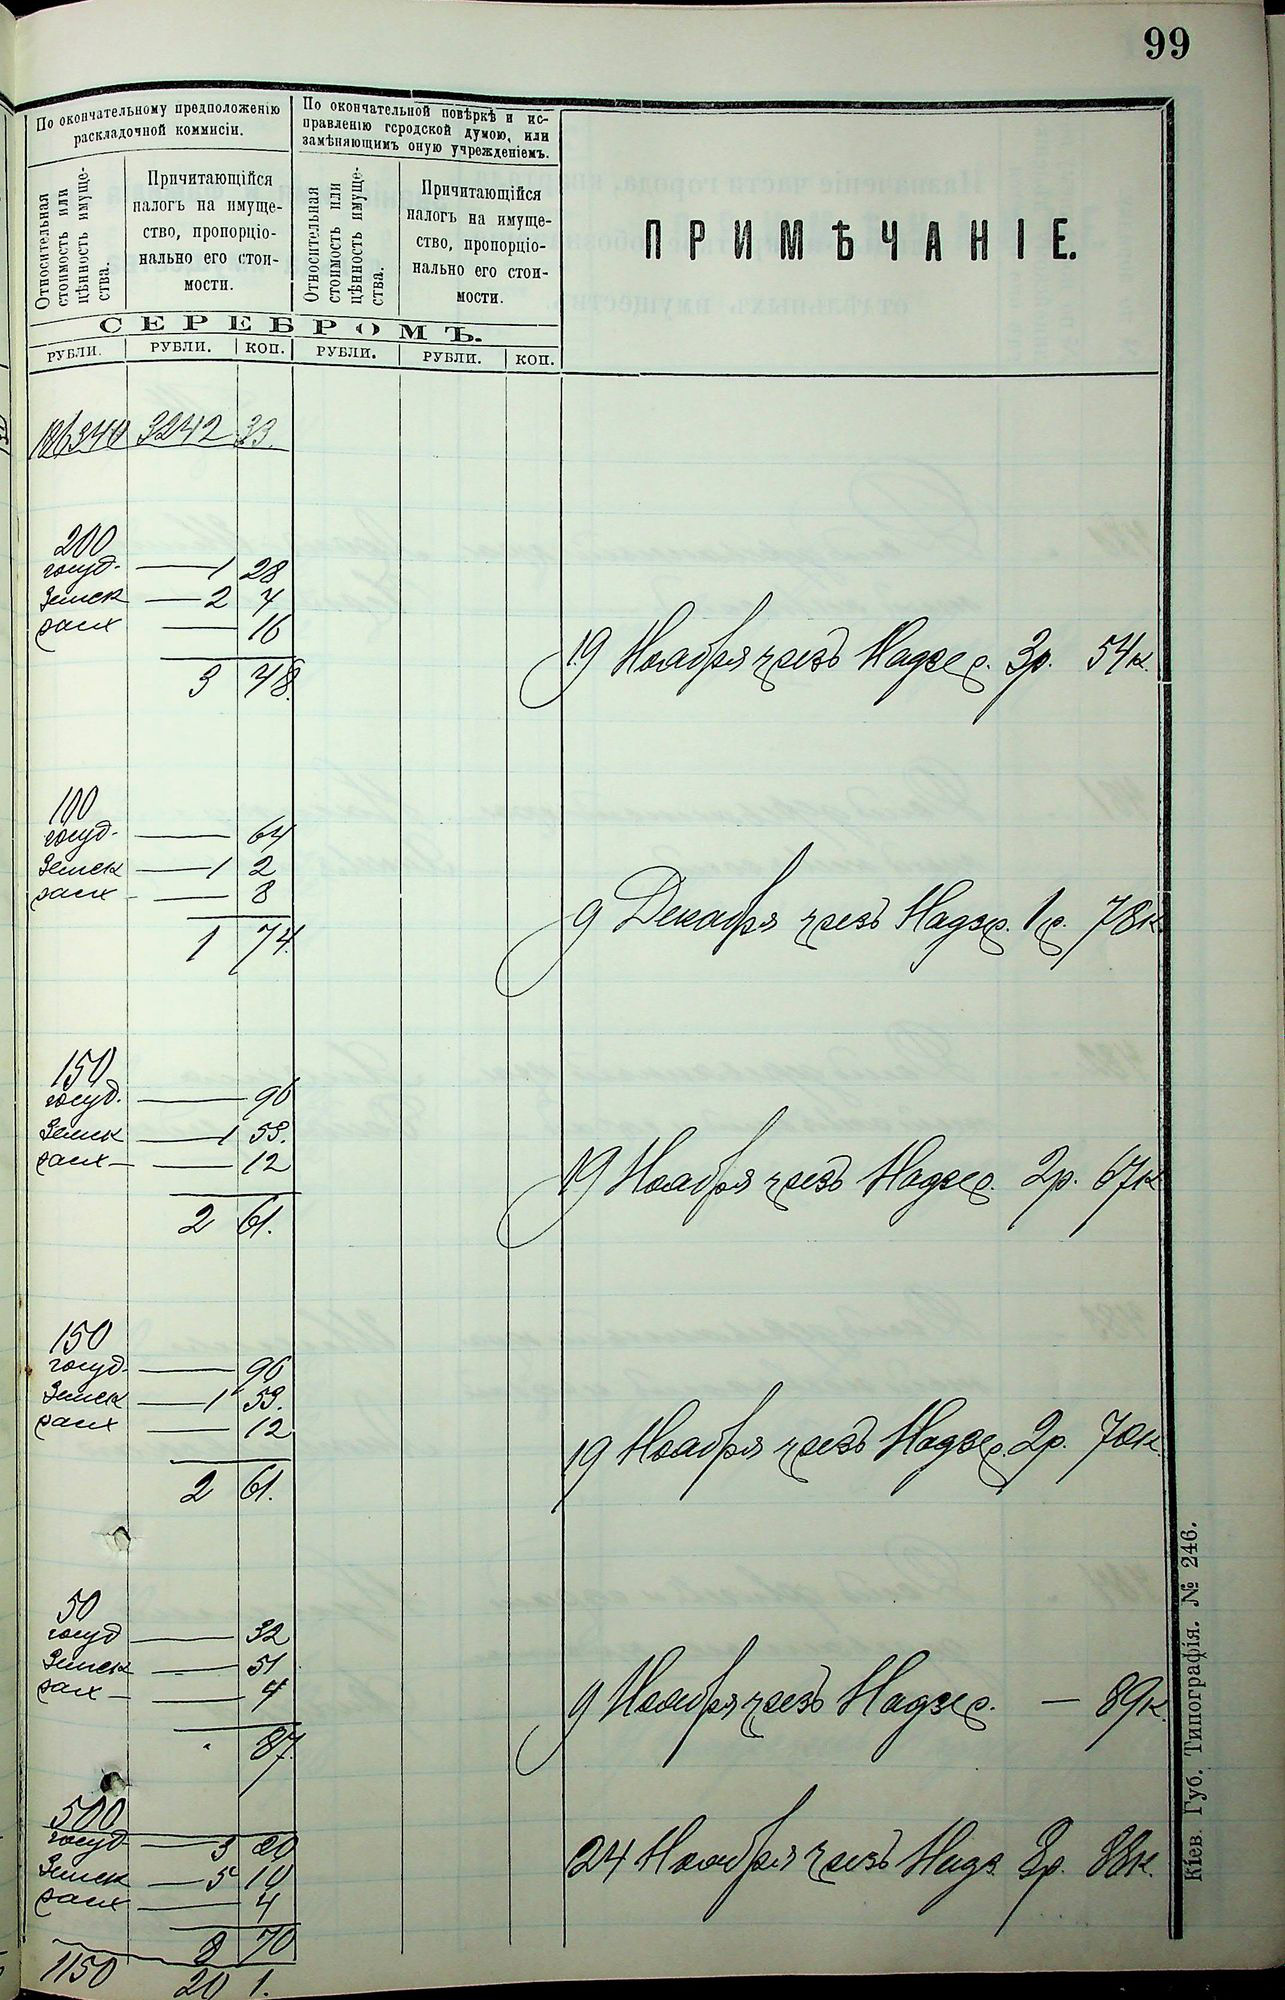 99
По окончательному предположенію
раскладочной коммисіи.
По окончательной повѣркѣ и ис-
правленію городской думою, или
замѣняющимъ оную учрежденіемъ.
Относительная
стоимость или
цѣнность имуще-
ства.
Причитающійся
налогъ на имуще-
ство, пропорціо-
нально его стои-
мости.
Относительная
стоимость или
цѣнность имуще-
ства.
Причитающійся
налогъ на имуще-
ство, пропорціо-
нально его стои-
мости.
ПРИМѢЧАНІЕ.
СЕРЕБРОМЪ.
РУБЛИ. РУБЛИ. КОП. РУБЛИ. РУБЛИ. КОП.
3242 33
200
госуд. — 1 28
Земск — 2 4
— 16
3 48.
19 Ноября чрезъ Надзер. 3р. 54к.
100
госуд. — 64
Земск — 1 2
— 8
1 74.
9 Декабря чрезъ Надзр. 1р. 78к.
150
госуд. — 96
Земск — 1 53.
— 12
2 61.
19 Ноября чрезъ Надзер. 2р. 67к
150
госуд. — 96
Земск — 1 53.
— 12
2 61.
19 Ноября чрезъ Надзер. 2р. 70к.
50
госуд — 32
Земск — 51
— 4
87.
9 Ноября чрезъ Надзер. — 89к.
500
госуд — 3 20
Земск — 5 10
— 4
8 70
24 Ноября чрезъ Надз. 8р. 88к.
1150 20 1.
Кіев. Губ. Типографія. № 246.